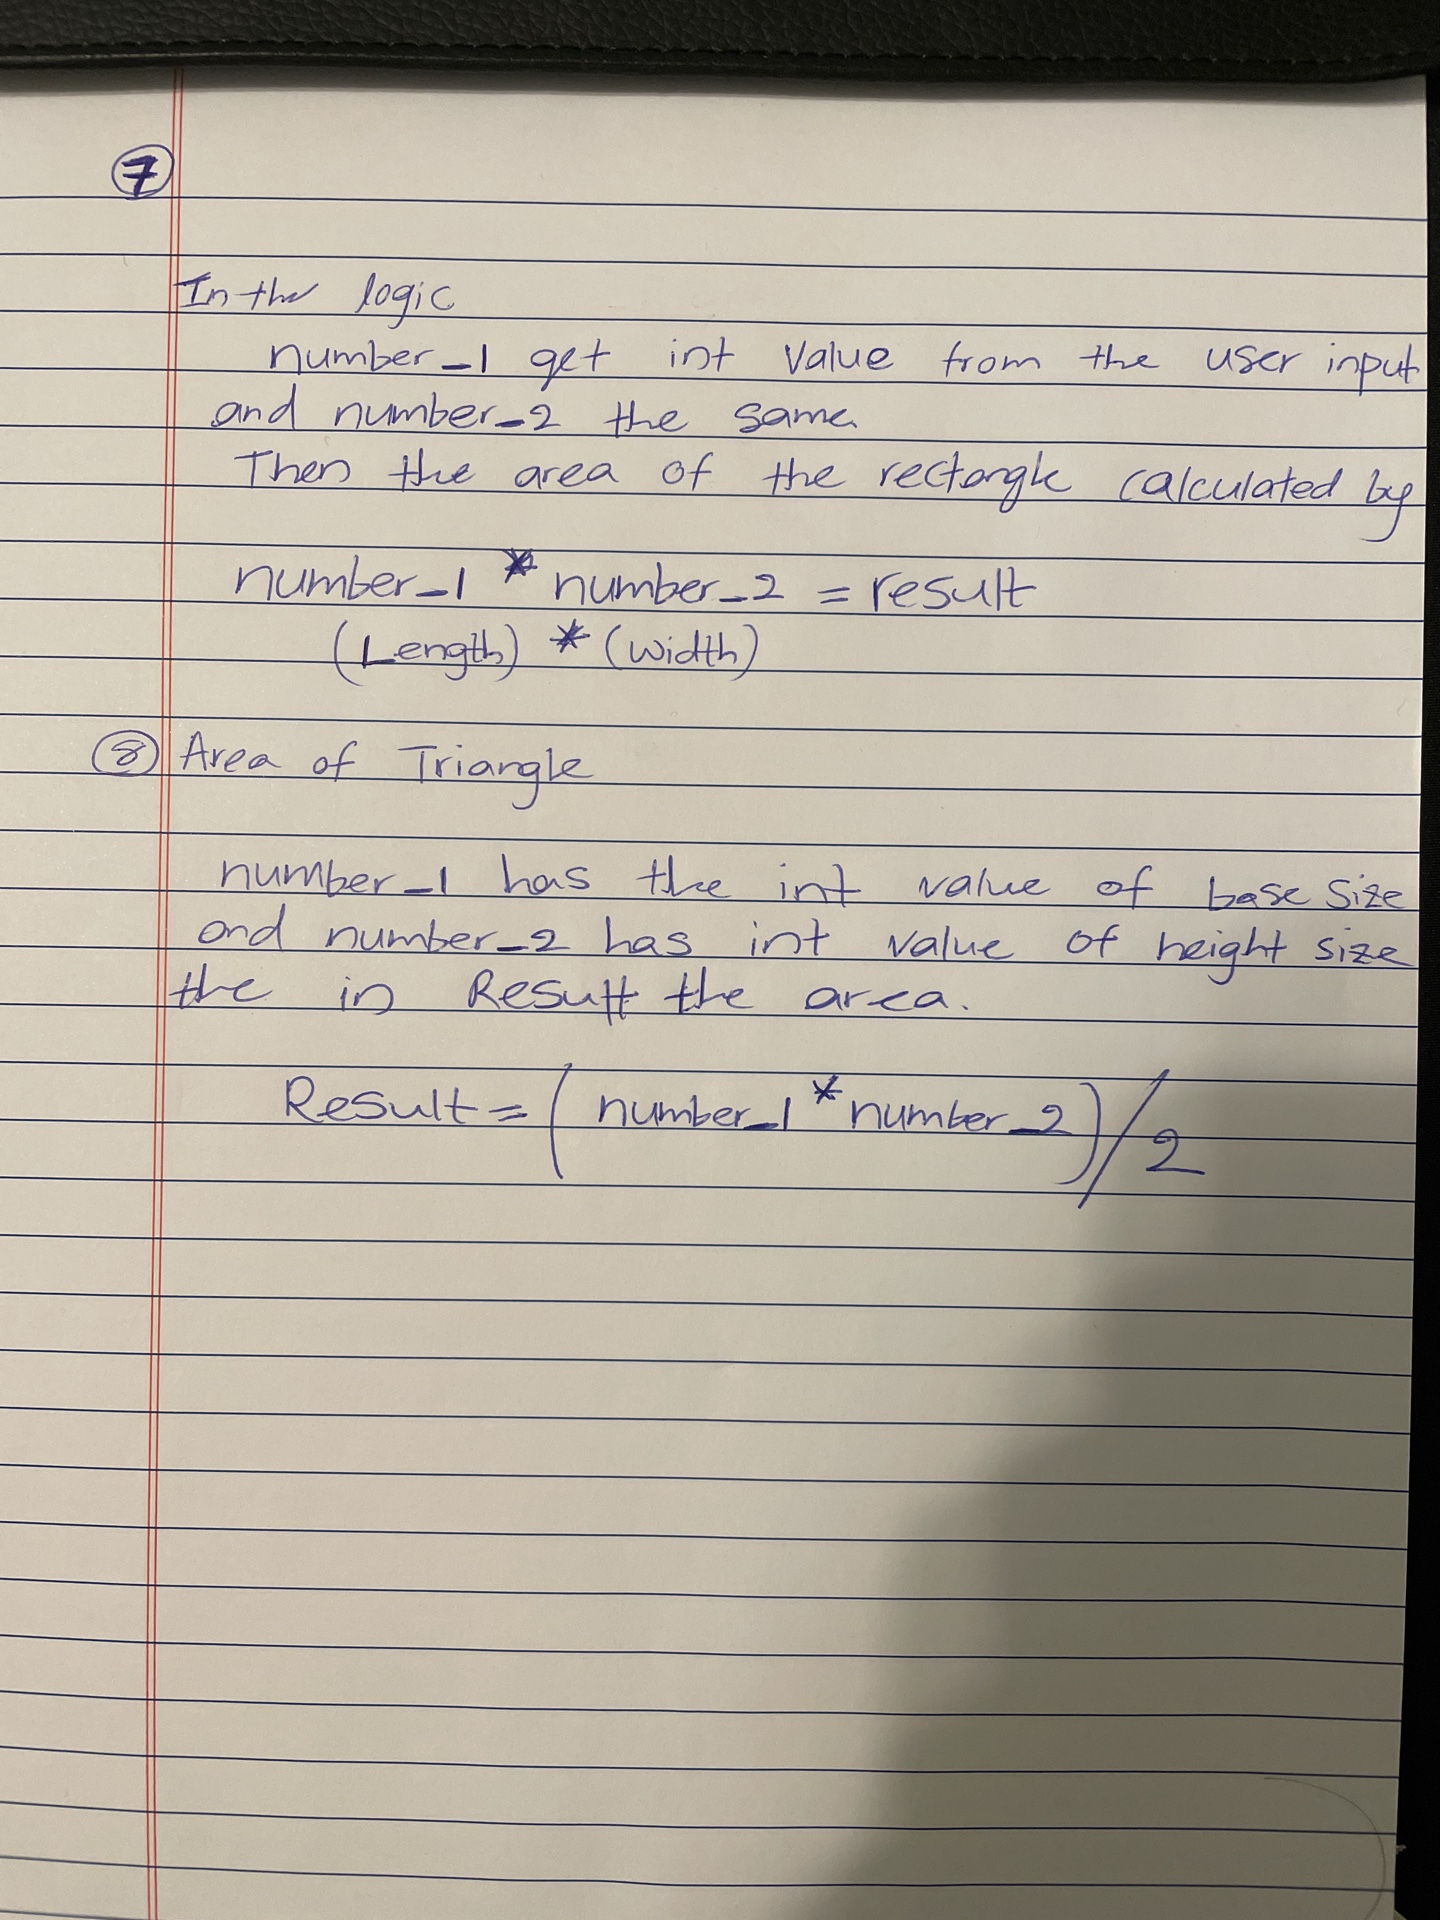 7
In the logic
number_1 get int value from the user input
and number_2 the same
Then the area of the rectangle calculated by
number_1 * number_2 = result
(Length) * (width)
8 Area of Triangle
number_1 has the int value of base size
and number_2 has int value of height size
the in Result the area.
Result = (number_1 * number_2)/2